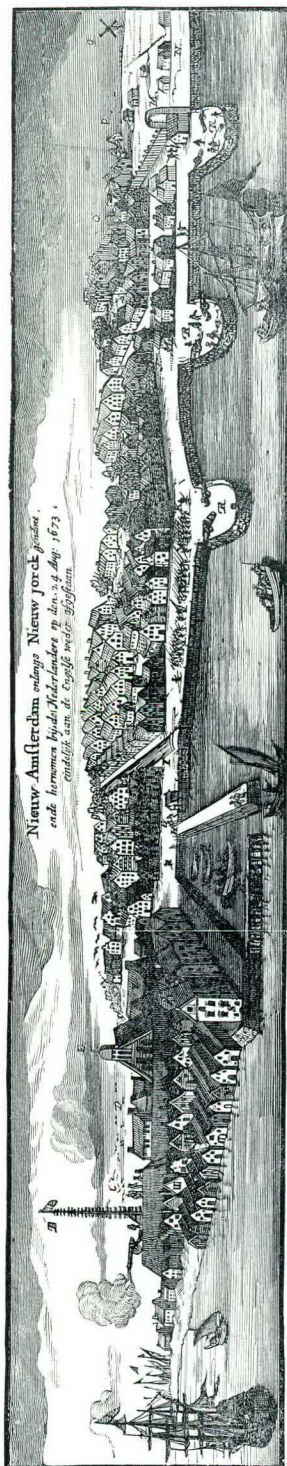 Nieuw-Amsterdam onlangs Nieuw jorck genaemt,
ende hernomen bij de Nederlanders op den 24 Aug: 1673,
eindelijk aan de Engelse weder afgestaan.